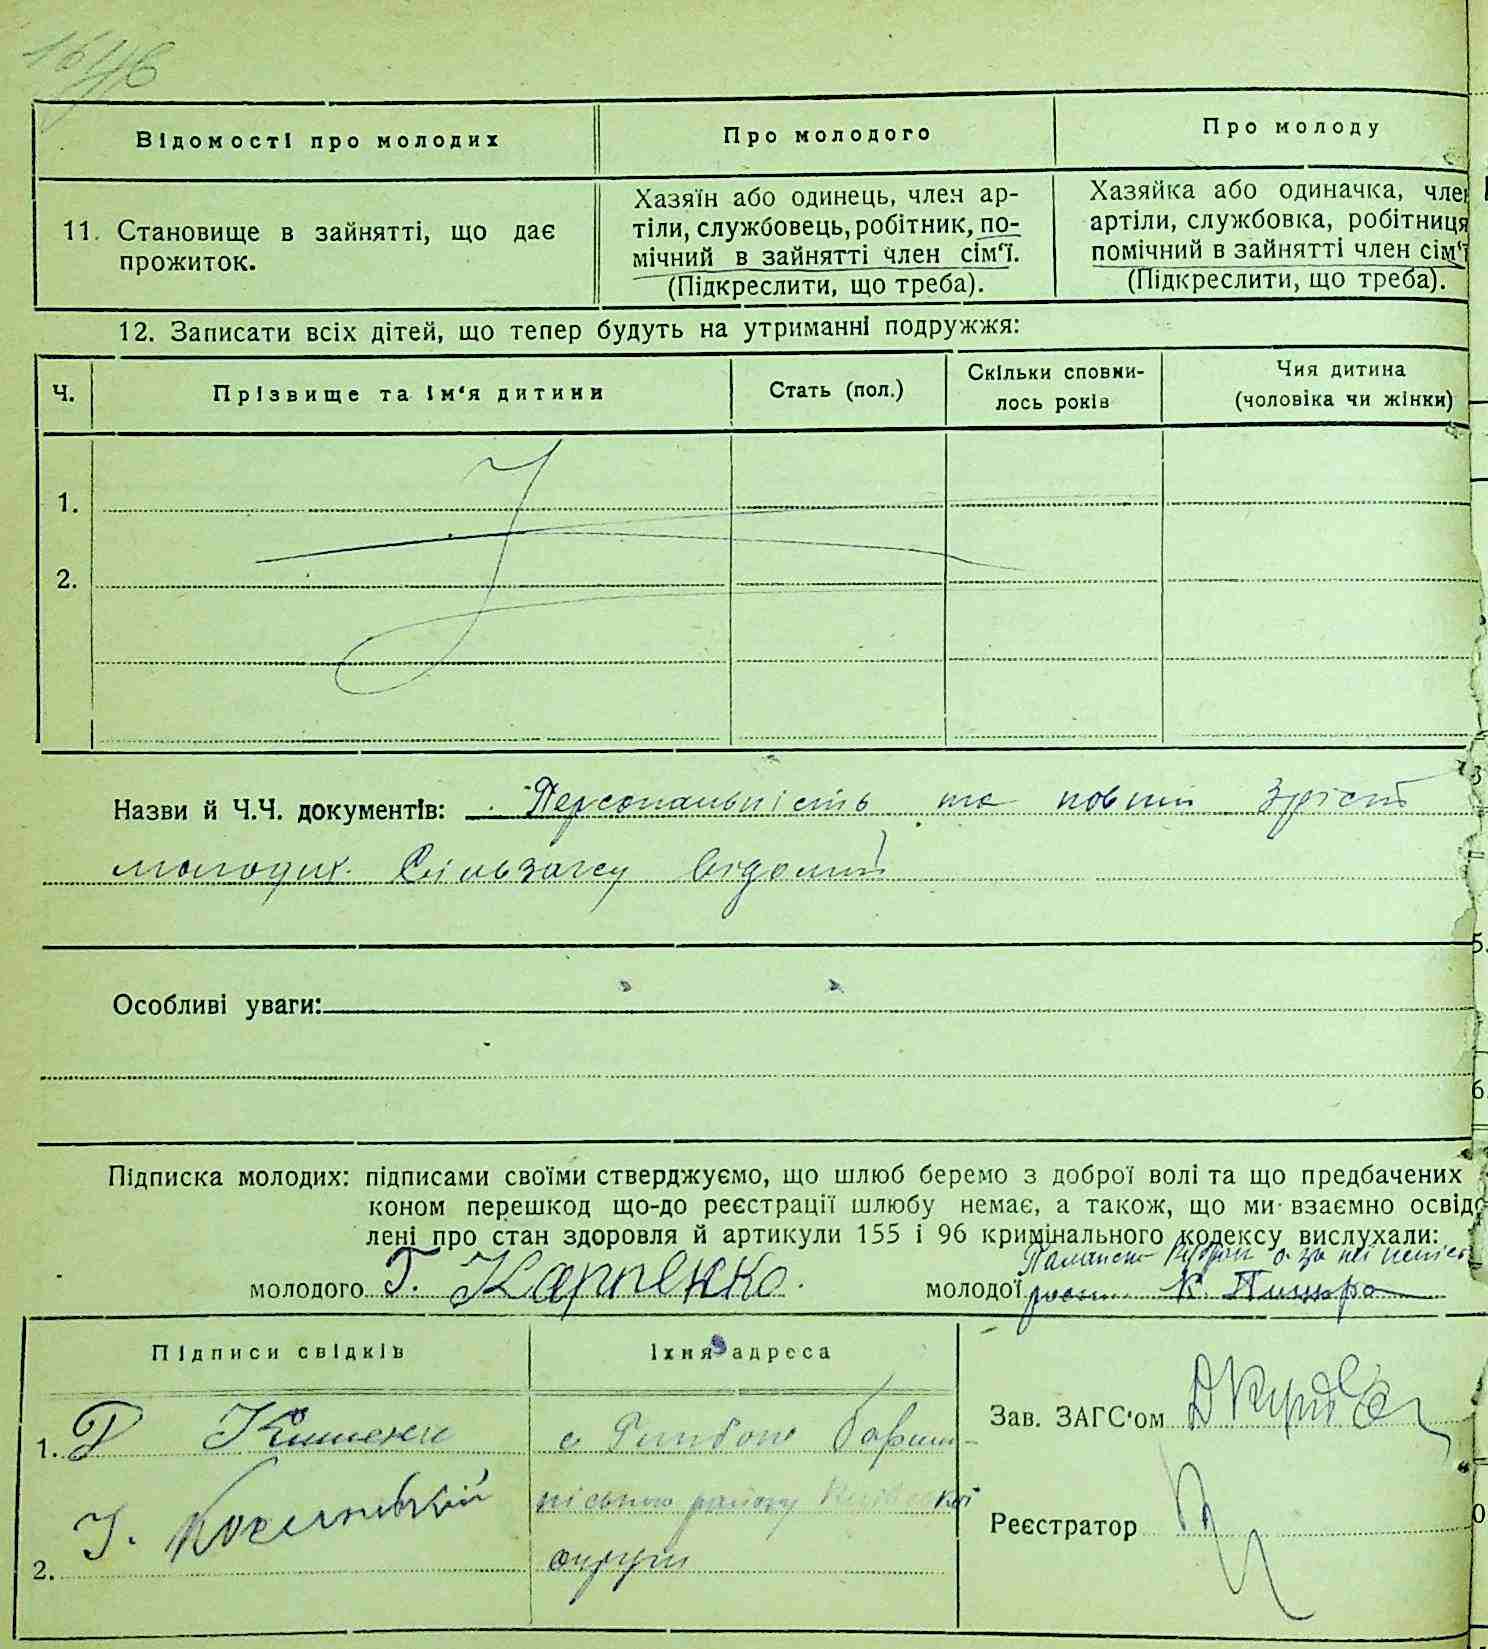 Відомості про молодих
Про молодого
Про молоду
11. Становище в зайнятті, що дає
прожиток.
Хазяїн або одинець, член ар-
тіли, службовець, робітник, по-
мічний в зайнятті член сім'ї.
(Підкреслити, що треба).
Хазяйка або одиначка, член
артіли, службовка, робітниця
помічний в зайнятті член сім'ї
(Підкреслити, що треба).
12. Записати всіх дітей, що тепер будуть на утриманні подружжя:
Ч.
Прізвище та ім'я дитини
Стать (пол.)
Скільки сповни-
лось років
Чия дитина
(чоловіка чи жінки)
1.
2.
Назви й Ч.Ч. документів: Персональність та повний зріст
молодих Сільзагсу відомий
Особливі уваги:
Підписка молодих: підписами своїми стверджуємо, що шлюб беремо з доброї волі та що предбачених
коном перешкод що-до реєстрації шлюбу немає, а також, що ми взаємно освідо
лені про стан здоровля й артикули 155 і 96 кримінального кодексу вислухали:
молодого Г. Карпенко.
молодої К.
Підписи свідків
Їхня адреса
1.
с
піського району Київської
округи
2. І.
Зав. ЗАГС'ом
Реєстратор